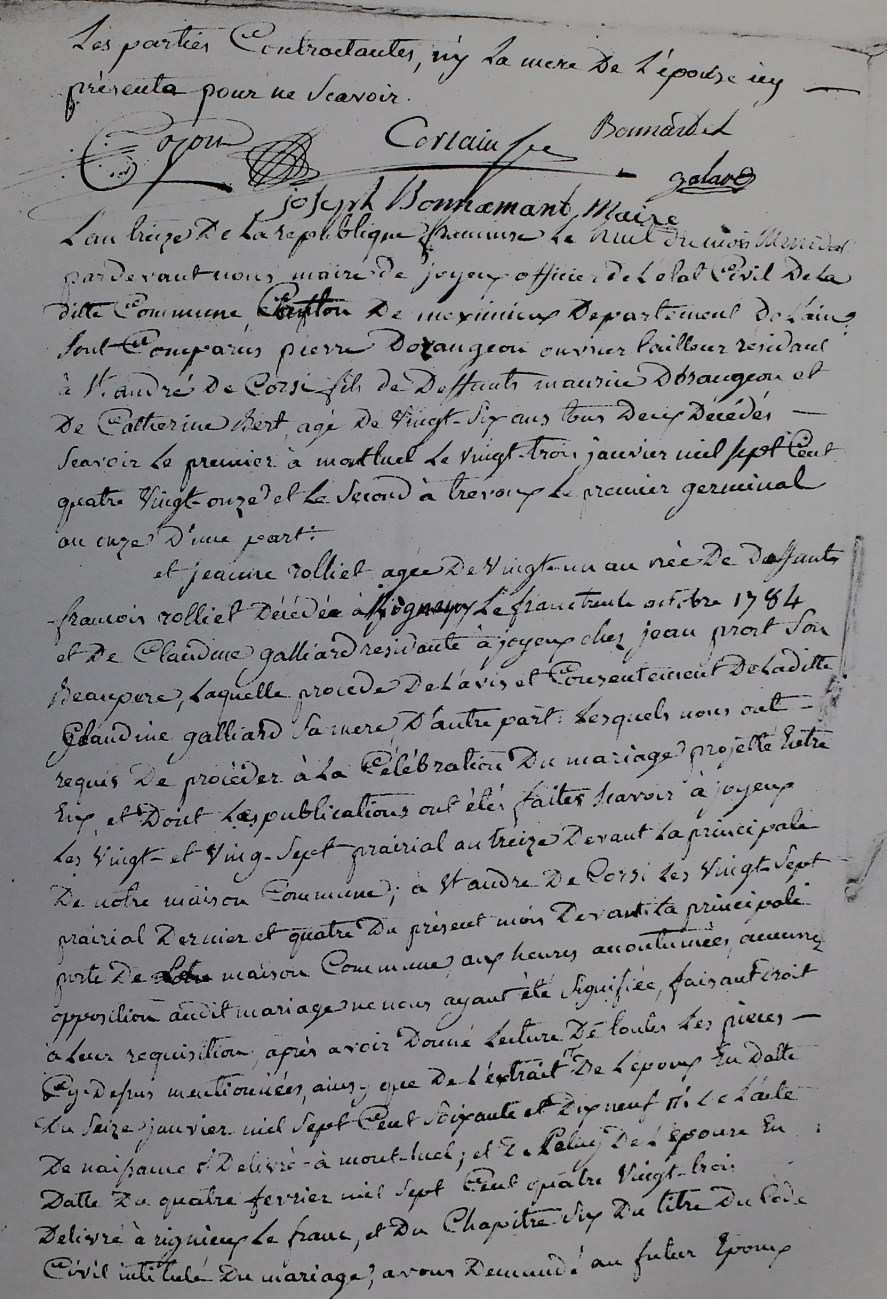 Les parties Contractantes, n'y La mere De L'épouse icy
présenta pour ne Scavoir.
Cozon Bonnardel
Joseph Bonnemant, Maire
L'an treize De La republique francaise Le huit du mois Messidor
pardevant nous maire de joyeux officier de L'etat Civil De La
ditte Commune Canton De meximieux Departement De L'ain
Sont Comparus pierre Dozangeon ouvrier tailleur residant
à St. andré De Corsi fils de Deffunts maurice Dozangeon et
De Catherine Bert, agé De Vingt-Six ans tous Deux Décédés
Scavoir Le premier à montluel Le Vingt-trois janvier mil Sept Cent
quatre Vingt onze et Le Second à trevoux Le premier germinal
an onze D'une part.
et jeanne rolliet agée De Vingt-un an née De Deffunts
francois rolliet Décédée à Le franc trente octobre 1784
et De Claudine galliard residante à joyeux chez jean prost Son
Beaupere, Laquelle procede De L'avis et Consentement De Laditte
Claudine galliard Sa mere D'autre part. Lesquels nous ont
requis De procéder à La Célébration Du mariage projetté Entre
Eux, et Dont Les publications ont étés faites Scavoir à joyeux
Les Vingt et Ving-Sept prairial an treize Devant La principale
De notre maison Commune; à St andre De Corsi Les Vingt-Sept
prairial Dernier et quatre Du présent mois Devant La principale
porte De maison Commune, aux heures accoutumées, aucune
opposition audit mariage ne nous ayant été Signifiée, faisant Droit
à Leur requisition, après avoir Donné Lecture De toutes Les pieces
Cy-Dessus mentionnées, ainsy que De L'extrait De L'epoux En Datte
Du Seize janvier mil Sept Cent Soixante et Dix neuf De L'acte
De naissance Delivré à mont-luel; et De Celuy De L'épouse En
Datte Du quatre fevrier mil Sept Cent quatre Vingt-trois
Delivré à rignieux Le franc, et Du Chapitre Six Du titre Du Code
Civil intitulé Du mariage, avons Demandé au futur Epoux